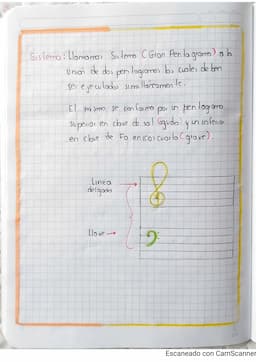 Sistema: llamamos Sistema (Gran Pentagrama) a la
Union de dos pentagramas los cuales deben
ser ejecutados simultaneamente.
El mismo se conforma por un pentagrama
superior en clave de sol (agudo) y un inferior
en clave de Fa en cuarta (grave).
Linea
delgada
llave
Escaneado con CamScanner